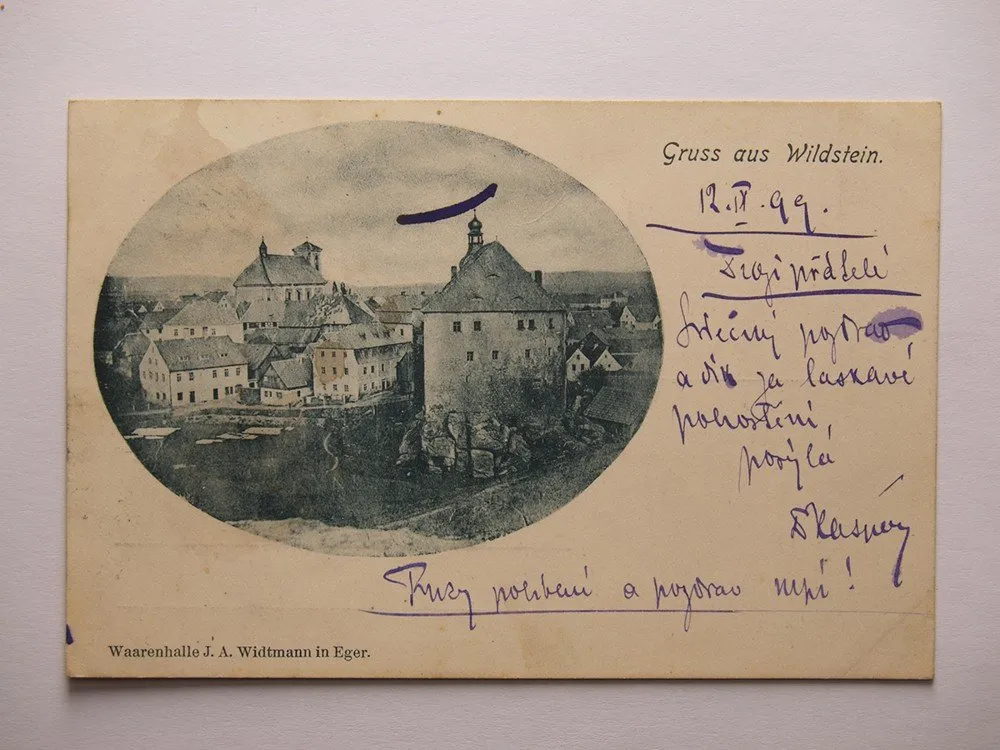 Gruss aus Wildstein.
12.IX.99.
Drazí přátelé
Srdečný pozdrav
a dík za laskavé
pohostění,
posýlá
Ruky políbení a pozdrav
Waarenhalle J. A. Widtmann in Eger.